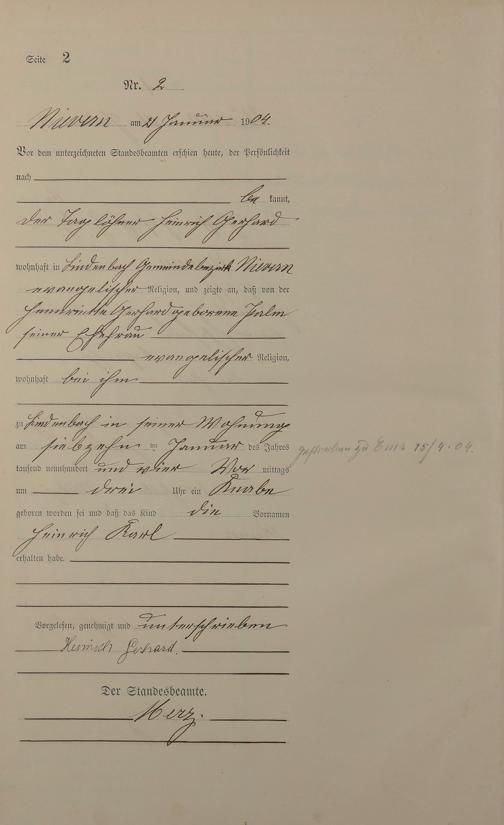 Seite 2
Nr. 2
Nievern am 21 Januar 1904.
Vor dem unterzeichneten Standesbeamten erschien heute, der Persönlichkeit
nach
be kannt,
der Taglöhner Heinrich Gerhard
wohnhaft in Lindenbach Gemeindebezirk Nievern
evangelischer Religion, und zeigte an, daß von der
Henriette Gerhard geborene Palm
seiner Ehefrau
evangelischer Religion,
wohnhaft bei ihm
zu Lindenbach in seiner Wohnung
am siebzehn ten Januar des Jahres
tausend neunhundert und vier Vor mittags
um drei Uhr ein Knabe
geboren worden sei und daß das Kind die Vornamen
Heinrich Karl
erhalten habe.
gestorben zu Ems 15/9.04.
Vorgelesen, genehmigt und unterschrieben
Heinrich Gerhard.
Der Standesbeamte.
Merz.